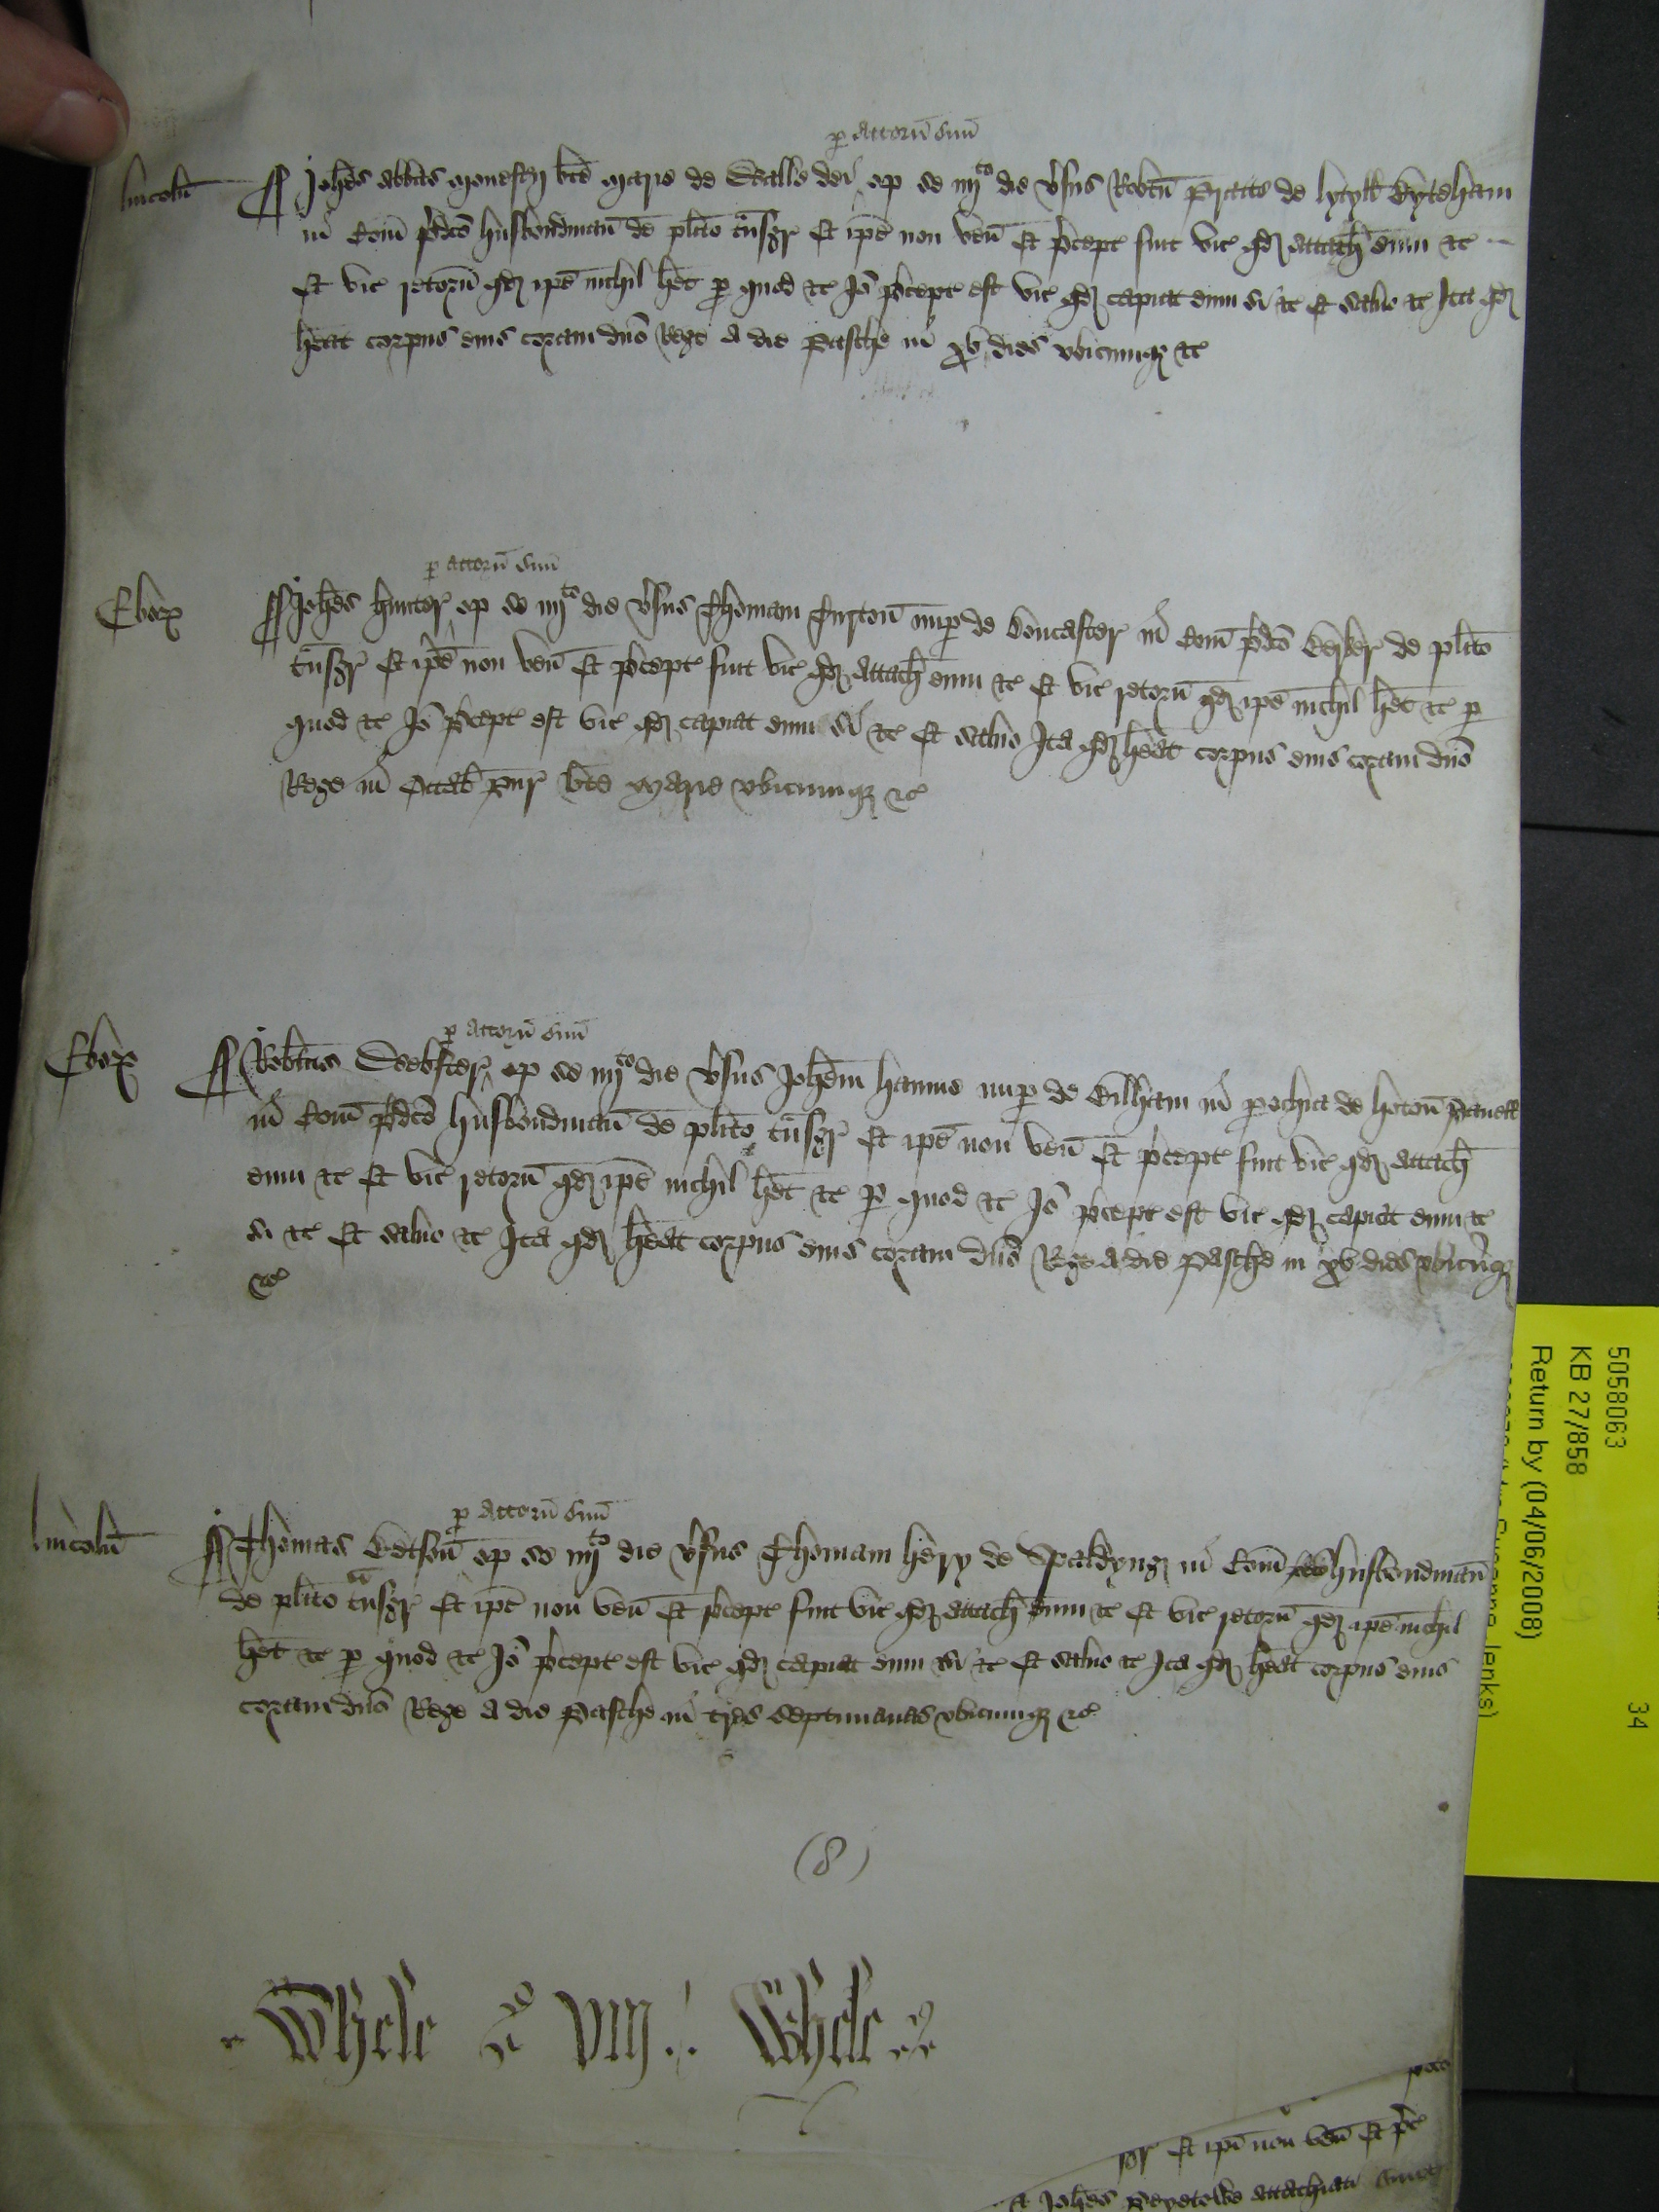 p attorñ suũ
Lincolñ Johes Abbas Monastij bte Marie de Valle dei op se iiijto die vsus Robtũ Pratte de lytyll Byteham
in Com pdco husbondmañ de plito tnsgr Et ipe non veñ Et pcept fuit vic qd attach eum &c
Et vic retorñ qd ipe nichil het p quod &c Jo pcept est vic qd capiat eum si &c Et salvo &c Ita qd
heat corpus eius coram dno Rege a die Pasche in xv dies vbicumq &c
p attorñ suũ
Ebor Johes hunter op se iiijto die vsus Thomam Turtoñ nup de Doncaster in Com pdco Barker de plito
tnsgr Et ipe non veñ Et pcept fuit vic qd attach eum &c Et vic retorñ qd ipe nichil het &c p
quod &c Jo pcept est vic qd capiat eum si &c Et salvo Ita qd heat corpus eius coram dno
Rege in Octab pur bte Marie vbicumq &c
p attorñ suũ
Ebor Robtus Webster op se iiijto die vsus Johem hanne nup de Bilham in pochia de hotoñ Panell
in Com pdco husbondmañ de plito tnsgr Et ipe non veñ Et pcept fuit vic qd attach
eum &c Et vic retorñ qd ipe nichil het &c p quod &c Jo pcept est vic qd capiat eum &c
si &c Et salvo &c Ita qd heat corpus eius coram dno Rege a die Pasche in xv dies vbicuq
&c
p attorñ suũ
Lincolñ Thomas Betsoñ op se iiijto die vsus Thomam hery de Spaldyng in Com pdco husbondmañ
de plito tnsgr Et ipe non veñ Et pcept fuit vic qd attach eum &c Et vic retorñ qd ipe nichil
het &c p quod &c Jo pcept est vic qd capiat eum si &c Et salvo &c Ita qd heat corpus eius
coram dno Rege a die Pasche in tres septimanas vbicumq &c
(8)
Whele Ro VIIJ Whele
sgr Et ipi non veñ Et pc
Johes attachiati
5058063 34
KB 27/858
Return by (04/06/2008)
Jenks)